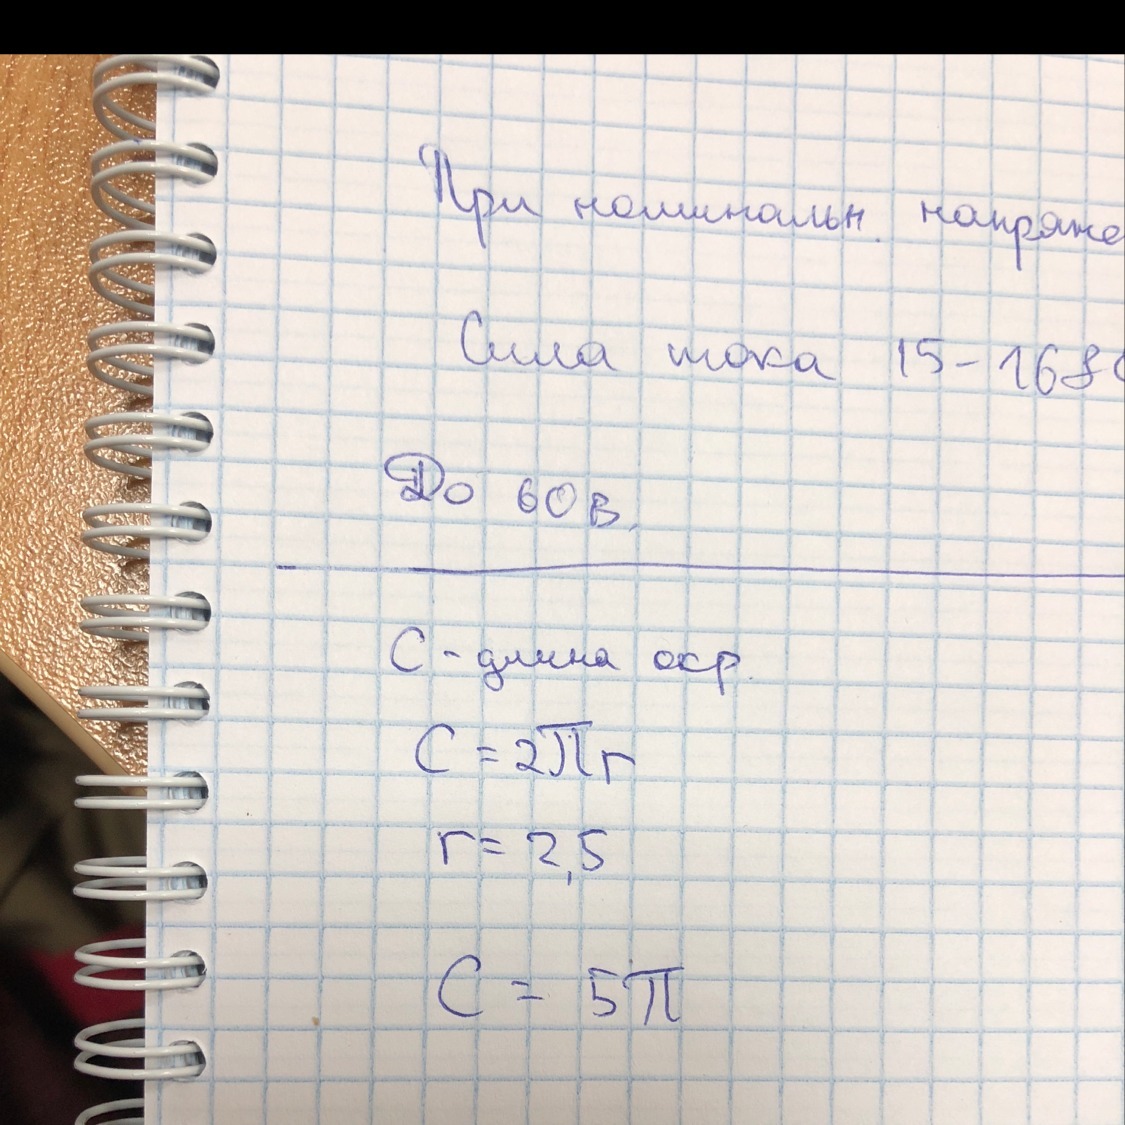 При номинальн. напряже
Сила тока 15-168
До 60 В.
С - длина окр.
C = 2πr
r = 2,5
C = 5π